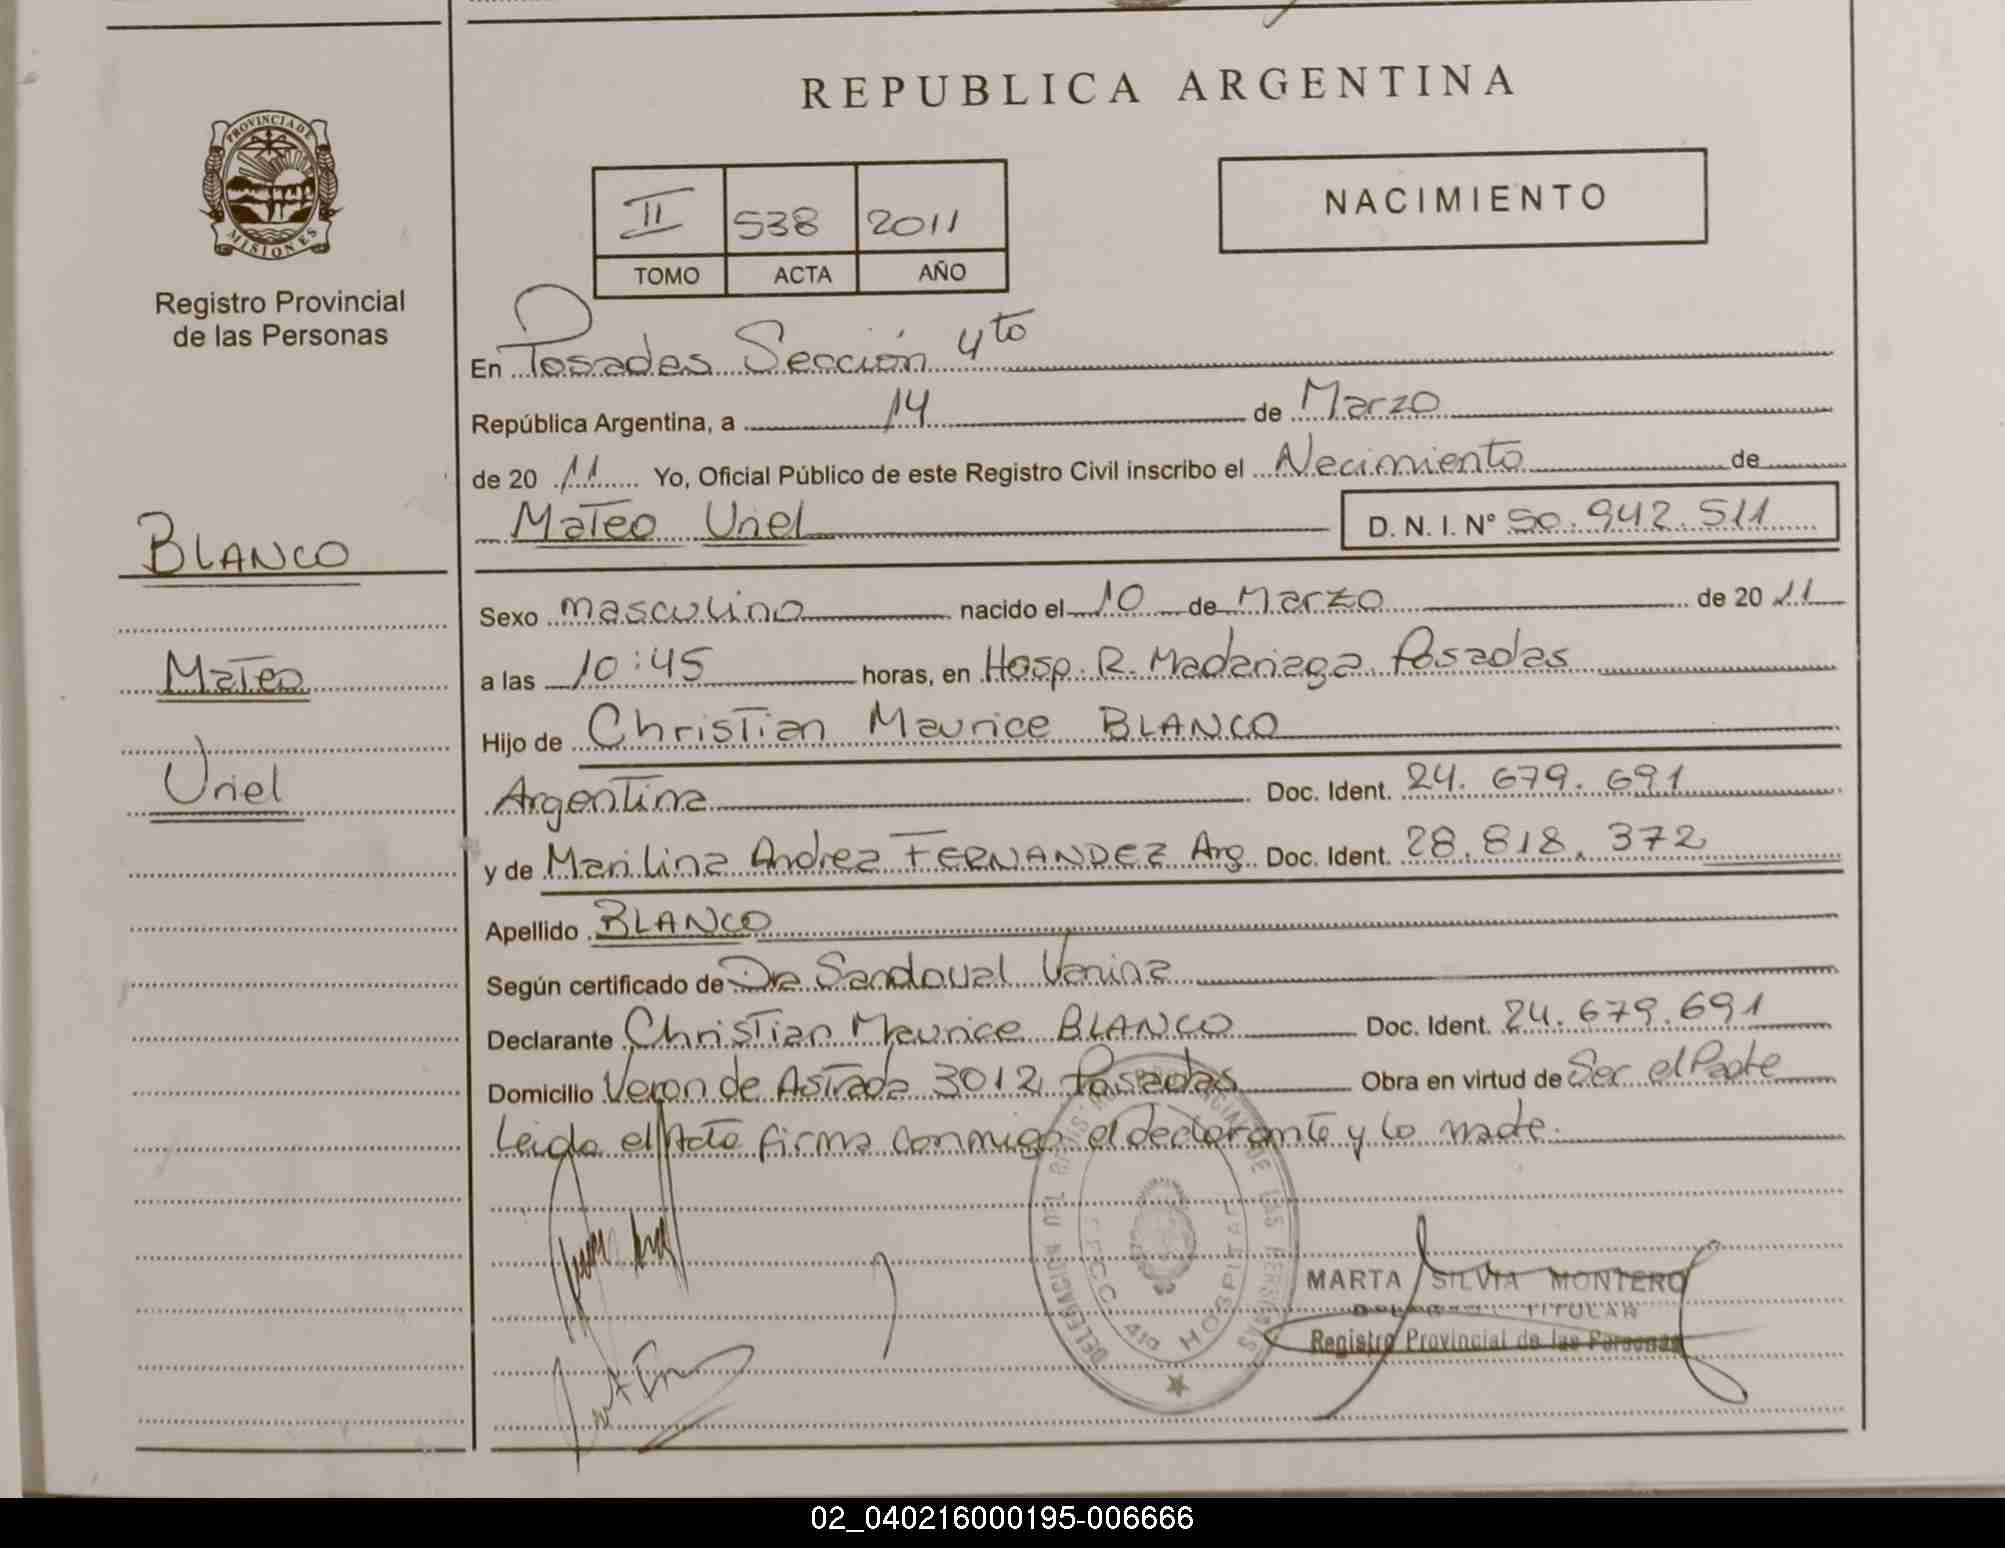 REPUBLICA ARGENTINA
PROVINCIA DE
MISIONES
Registro Provincial
de las Personas
II 538 2011
TOMO ACTA AÑO
NACIMIENTO
En Posadas Sección 4to
República Argentina, a 14 de Marzo
de 20 11 Yo, Oficial Público de este Registro Civil inscribo el Nacimiento de
Mateo Uriel D. N. I. N° 50.942.511
BLANCO
Mateo
Uriel
Sexo masculino nacido el 10 de Marzo de 20 11
a las 10:45 horas, en Hosp. R. Madariaga Posadas
Hijo de Christian Maurice BLANCO
Argentina Doc. Ident. 24.679.691
y de Marilina Andrea FERNANDEZ Arg. Doc. Ident. 28.818.372
Apellido BLANCO
Según certificado de Dra Sandoval Vanina
Declarante Christian Maurice BLANCO Doc. Ident. 24.679.691
Domicilio Veron de Astrada 3012 Posadas Obra en virtud de Ser el Padre
Leida el Acta firma conmigo el declarante y la madre.
HOSPITAL
MARTA SILVIA MONTERO
TITULAR
Registro Provincial de las Personas
02_040216000195-006666